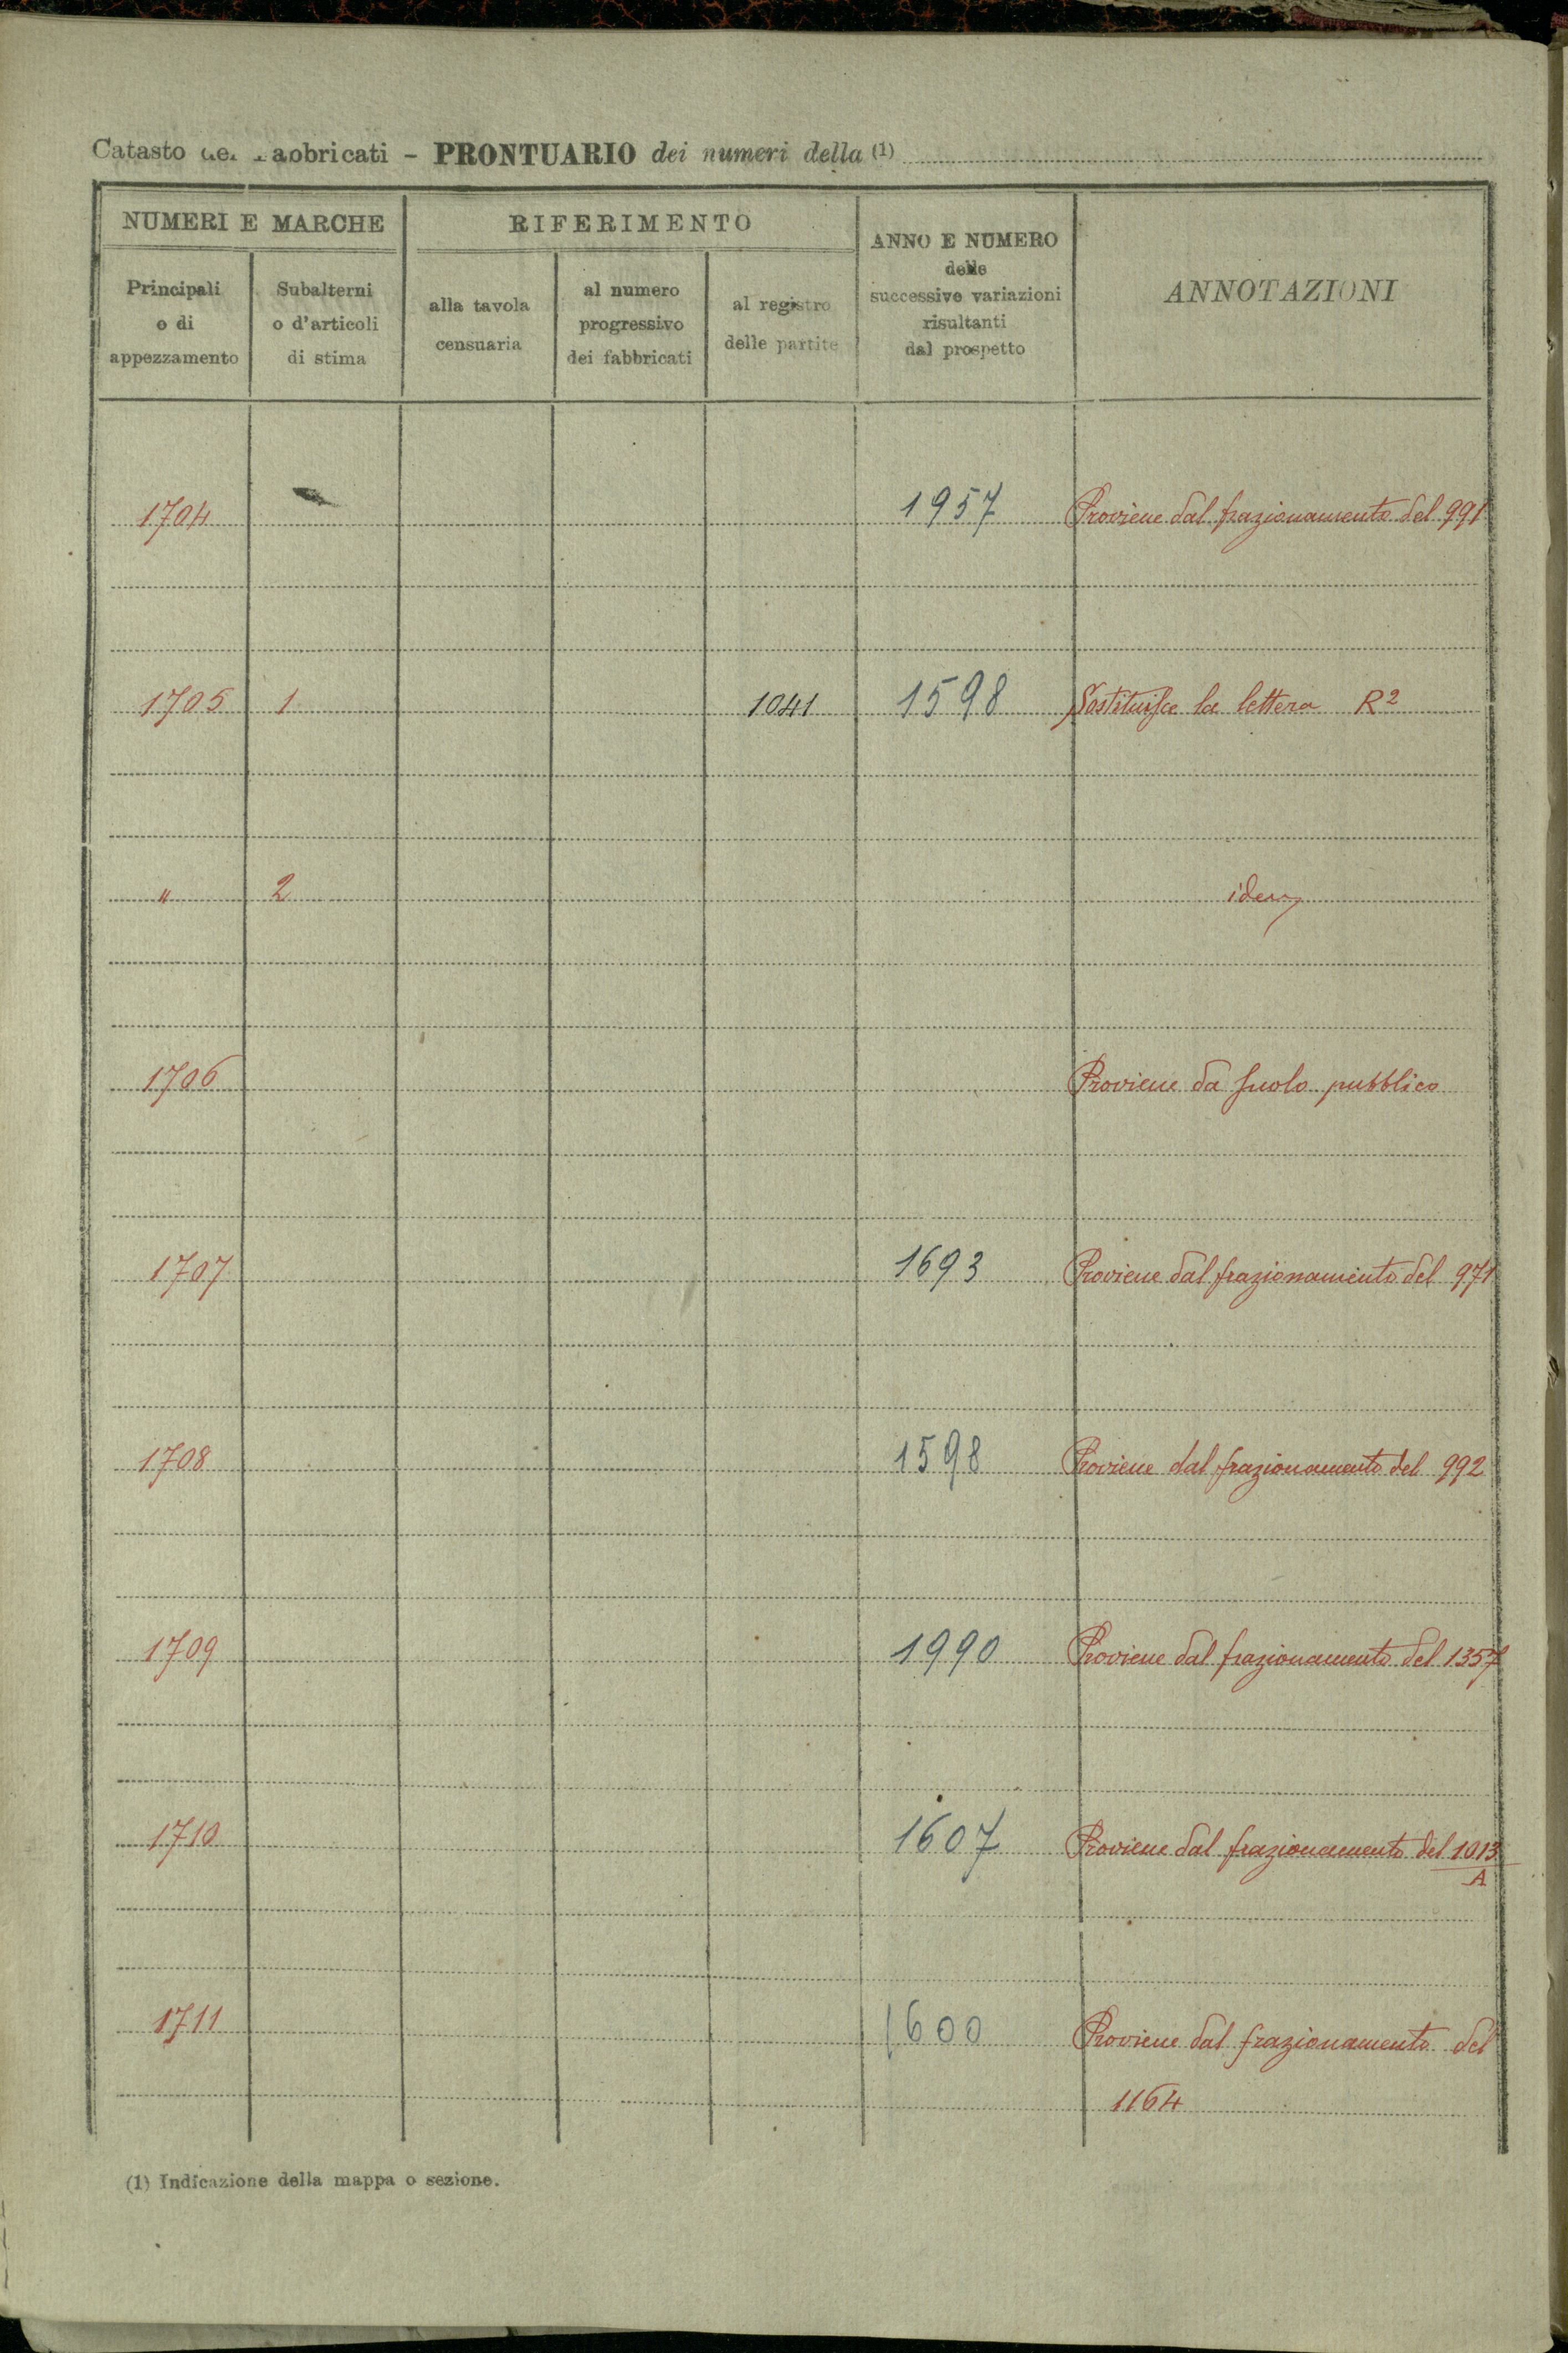 Catasto dei Fabbricati - PRONTUARIO dei numeri della (1)
NUMERI E MARCHE
RIFERIMENTO
ANNO E NUMERO
delle
successive variazioni
risultanti
dal prospetto
ANNOTAZIONI
Principali
o di
appezzamento
Subalterni
o d'articoli
di stima
alla tavola
censuaria
al numero
progressivo
dei fabbricati
al registro
delle partite
1704 1957 Proviene dal frazionamento del 991
1705 1 1041 1598 Sostituisce la lettera R2
" 2 idem
1706 Proviene da suolo pubblico
1707 1693 Proviene dal frazionamento del 971
1708 1598 Proviene dal frazionamento del 992
1709 1990 Proviene dal frazionamento del 1357
1710 1607 Proviene dal frazionamento del 1013
A
1711 1600 Proviene dal frazionamento del
1164
(1) Indicazione della mappa o sezione.